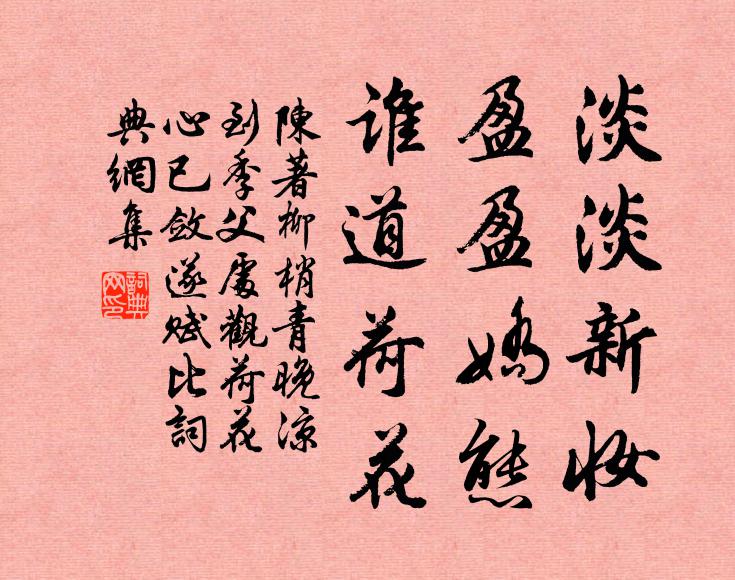 淡淡新妆
盈盈嬌態
誰道荷花
陳著柳梢青晚涼
到季父處觀荷花
心已斂遂賦比詞
典網集
詞典
网印